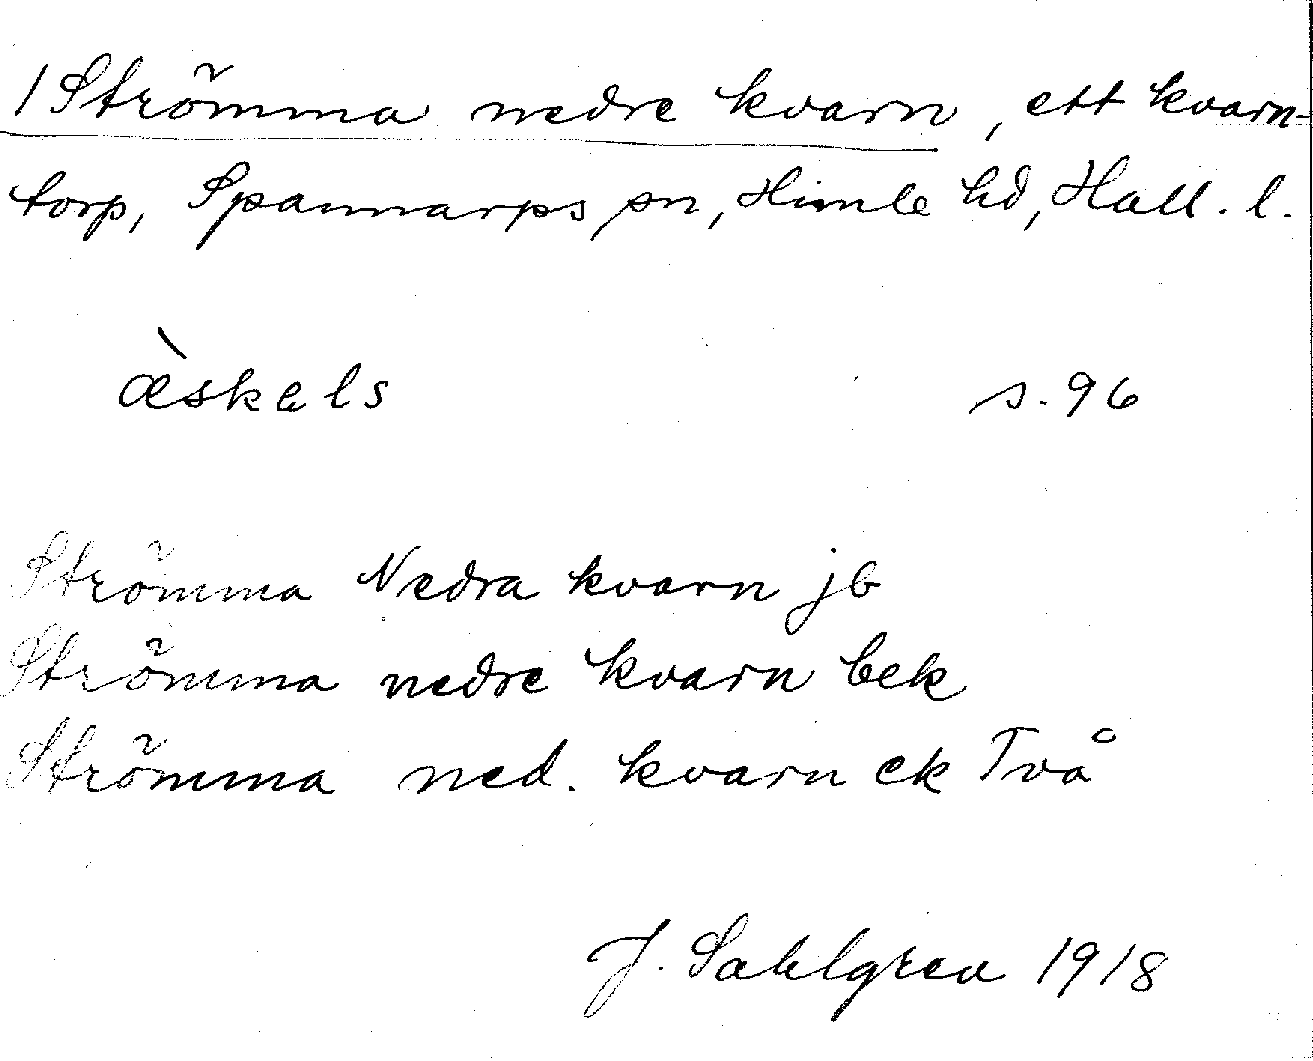 1 Strömma nedre kvarn, ett kvarn-
torp, Spannarps sn, Himle hd, Hall. l.
æ̀skəls s. 96
Strömma Nedra kvarn jb
Strömma nedre kvarn bek
Strömma ned. kvarn ek Två
J. Sahlgren 1918